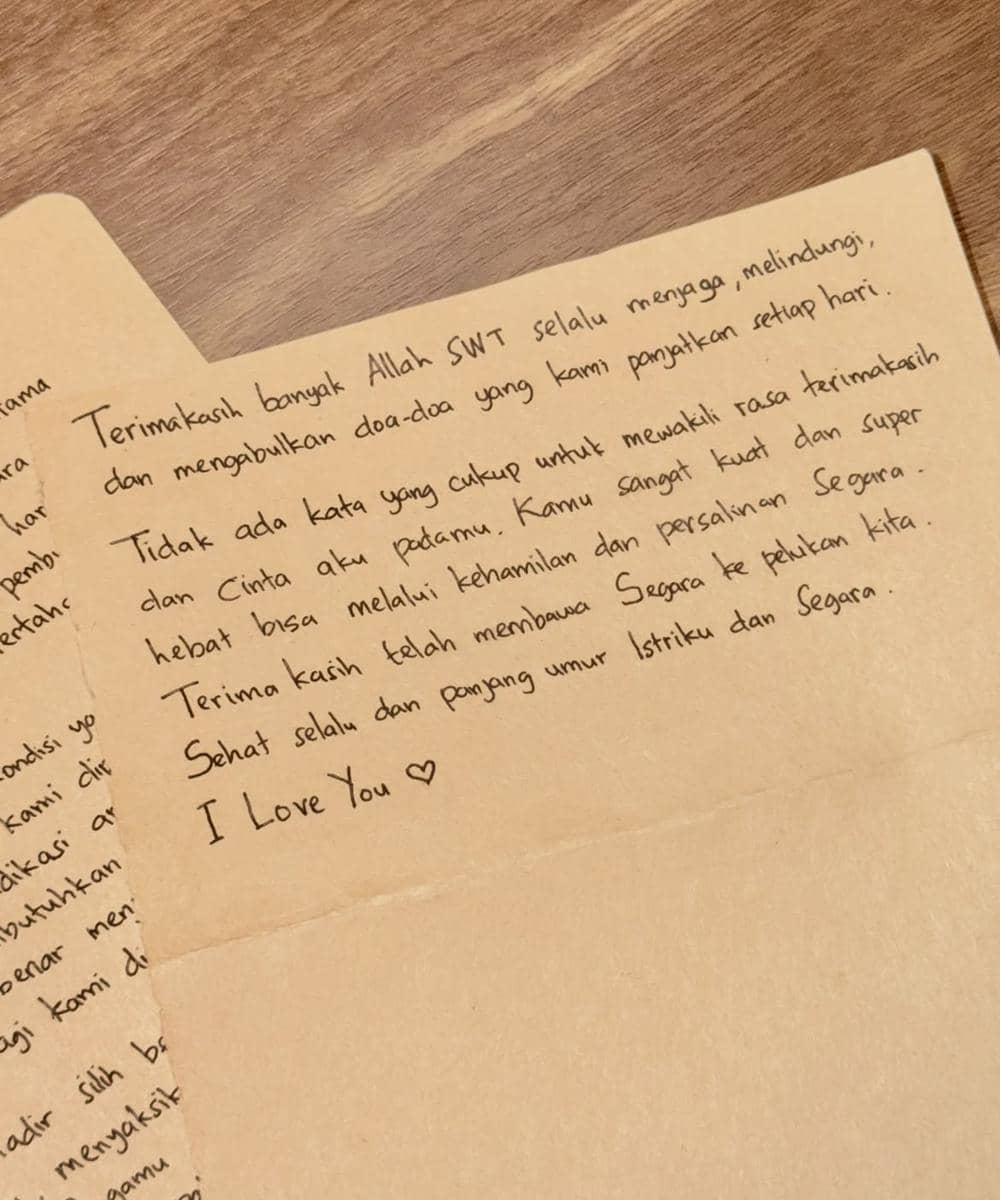 rama
ara
har
pemb
ertaha
ondisi ya
kami dir
dikasi ar
butuhkan
benar men
agi kami di
hadir silih ba
menyaksik
gamu
Terimakasih banyak Allah SWT selalu menjaga, melindungi,
dan mengabulkan doa-doa yang kami panjatkan setiap hari.
Tidak ada kata yang cukup untuk mewakili rasa terimakasih
dan Cinta aku padamu. Kamu sangat kuat dan super
hebat bisa melalui kehamilan dan persalinan Segara.
Terima kasih telah membawa Segara ke pelukan kita.
Sehat selalu dan panjang umur Istriku dan Segara.
I Love You ♡